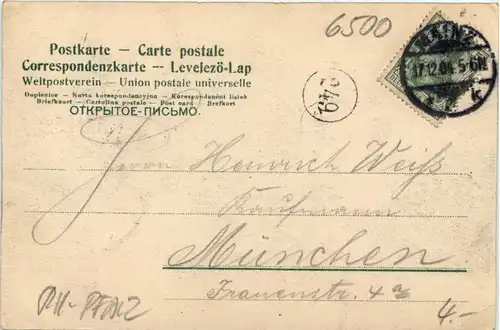 6500
Postkarte – Carte postale
Correspondenzkarte -- Levelező-Lap
Weltpostverein – Union postale universelle
Dopisnice – Karta korespondencyjna – Korespondenční lístek
Briefkaart – Cartolina postale – Post card – Brefkort
ОТКРЫТОЕ-ПИСЬМО.
MAINZ
17.12.04. 5-6N.
Herrn Heinrich Weiß
Kaufmann
München
Frauenstr. 4 a/2
RH-PFALZ
4.-